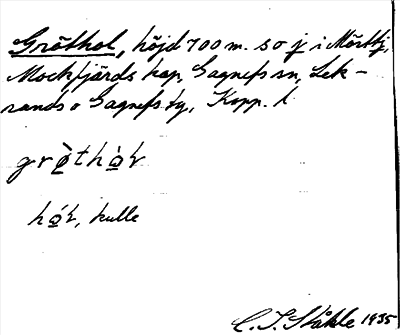 Gröthol, höjd 700 m. s o j i Mörttj,
Mockfjärds kap, Gagnefs sn, Lek-
sands o Gagnefs tg, Kopp. l.
hulle
C. I. Ståhle 1935